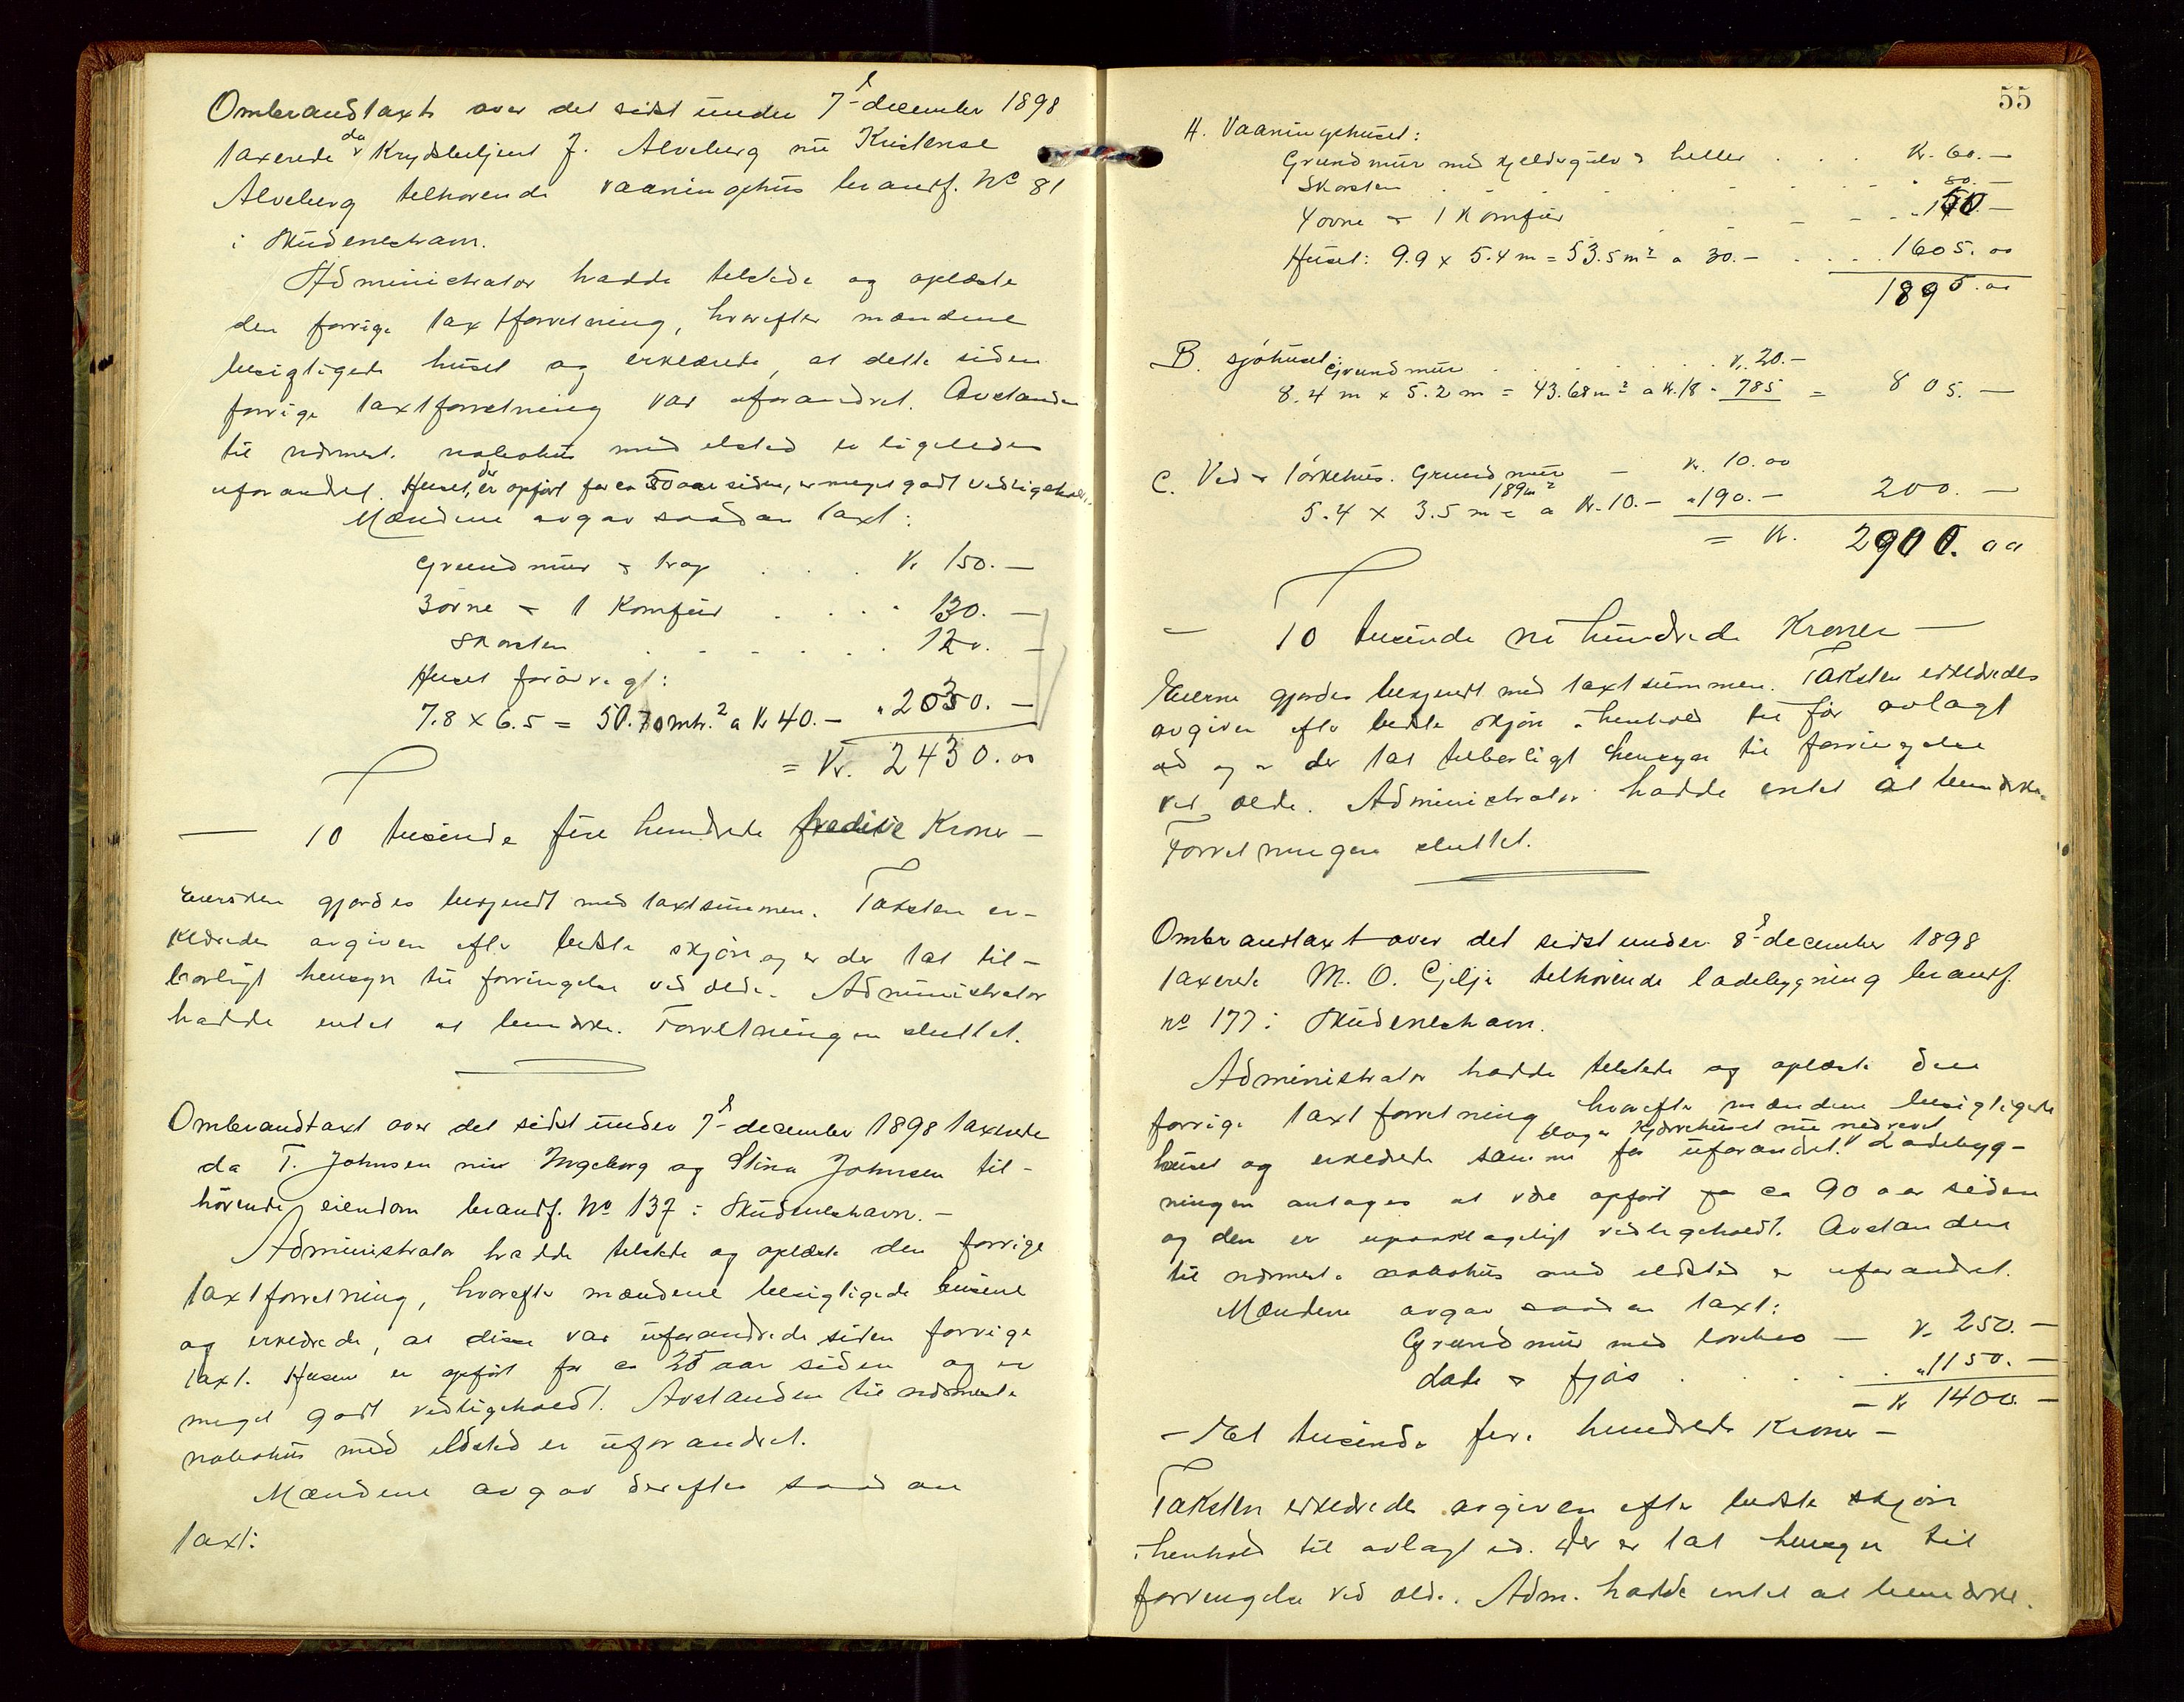 Ombrandtaxt over det sidst under 7de december 1898
taxerede da Krydsbetjent J. Alveberg nu Kristense
Alveberg tilhørende vaaningshus brandf. No 81
i Skudeneshavn.
Administrator hadde tilstede og oplæste
den forrige taxtforretning, hvorefter mændene
besigtigede huset og erklærede, at dette siden
forrige taxtforretning var uforandret. Avstanden
til nærmest. nabohus med ilsted er ligeledes
uforandret. Huset, der er opført for ca 50 aar siden, er meget godt vedligeholdt.
Mændene avgav saadan taxt:
Grundmur & trap . . . Kr 150.—
3 ovne & 1 Komfur . . . " 130.—
Skorsten . . . . . . 120.—
Huset forøvrigt:
7.8 x 6.5 = 50.70 mtr.² a Kr 40.— " 2030.—
= Kr. 2430.00
— To tusinde fire hundrede tredive Kroner —
Eiersken gjordes bekjendt med taxtsummen. Taksten er-
klæredes avgiven efter bedste skjøn og er der tat til-
børligt hensyn til forringelse ved ælde. Administrator
hadde intet at bemærke. Forretningen sluttet.
Ombrandtaxt over det sidst under 7de december 1898 taxerede
da T. Johnsen nu Ingeborg og Stina Johnsen til-
hørende eiendom brandf. No 137 i Skudeneshavn.—
Administrator hadde tilstede og oplæste den forrige
taxtforretning, hvorefter mændene besigtigede husene
og erklærede, at disse var uforandrede siden forrige
taxt. Husene er opført for ca 25 aar siden og er
meget godt vedligeholdt. Avstanden til nærmeste
nabohus med ildsted er uforandret.
Mændene avgav derefter saadan
taxt:
55
A. Vaaningshuset:
Grundmur med kjeldergulv & heller . . . Kr. 60.—
Skorsten . . . . . . " 80.—
4 ovne & 1 Komfur — — . . " 150.—
Huset: 9.9 x 5.4 m = 53.5 m² a 30.— . . . 1605.00
1895.00
B. sjøhuset: Grundmur . . . . . . Kr. 20.—
8.4 m x 5.2 m = 43.68 m² a Kr. 18 " 785 = 805.—
C. Ved & tørkehus. Grundmur — Kr. 10.00
5.4 x 3.5 m = 189 m² a Kr. 10.— " 190.— 200.—
= Kr. 2900.00
— To tusinde ni hundrede Kroner —
Eierne gjordes bekjendt med taxtsummen. Taksten erklæredes
avgiven efter bedste skjøn i henhold til før avlagt
ed og er der tat tilbørligt hensyn til forringelse
ved ælde. Administrator hadde intet at bemærke.
Forretningen sluttet.
Ombrandtaxt over det sidst under 8de december 1898
taxerede M. O. Gjelje tilhørende ladebygning brandf.
no 177 i Skudeneshavn.
Administrator hadde tilstede og oplæste den
forrige taxtforretning hvorefter mændene besigtigede
huset og erklærede samme for uforandret. dog er nu nedrevet Ladebyg-
ningen antages at være opført for ca 90 aar siden
og den er upaaklageligt vedligeholdt. Avstanden
til nærmeste nabohus med ildsted er uforandret.
Mændene avgav saadan taxt:
Grundmur med — Kr. 250.—
Lade & fjøs . . . . . " 1150.—
— Kr 1400.—
— Et tusinde fire hundrede Kroner —
Taksten erklæredes avgiven efter bedste skjøn
i henhold til avlagt ed. Der er tat hensyn til
forringelse ved ælde. Adm. hadde intet at bemærke.